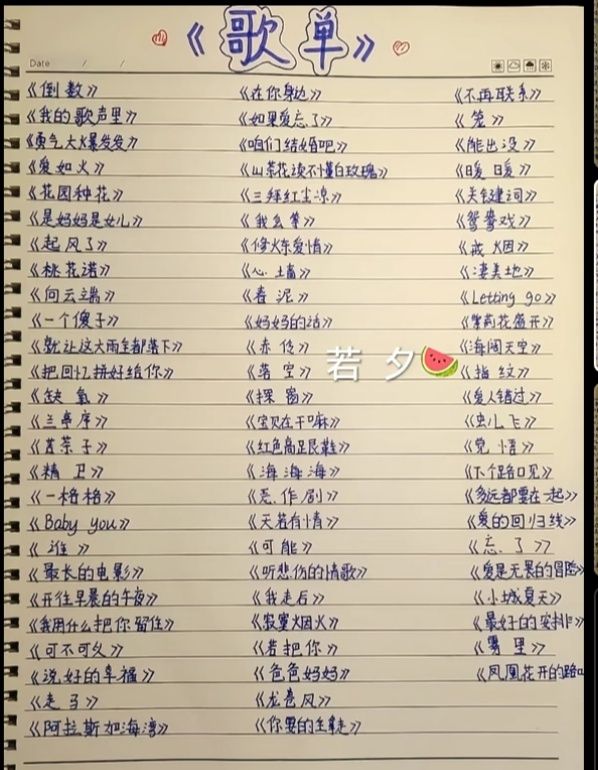 《歌单》
Date / /
《倒数》 《在你身边》 《不再联系》
《我的歌声里》 《如果爱忘了》 《笼》
《勇气大爆发发》 《咱们结婚吧》 《能出没》
《爱如火》 《山茶花读不懂白玫瑰》 《暖暖》
《花园种花》 《三拜红尘凉》 《关键词》
《是妈妈是女儿》 《我怎么管》 《鸳鸯戏》
《起风了》 《修炼爱情》 《戒烟》
《桃花诺》 《心墙》 《凄美地》
《向云端》 《春泥》 《Letting go》
《一个傻子》 《妈妈的话》 《茉莉花盛开》
《就让这大雨全都落下》 《赤伶》 《海阔天空》
若夕
《把回忆拼好给你》 《落空》 《指纹》
《缺氧》 《探窗》 《爱人错过》
《兰亭序》 《宝贝在干嘛》 《虫儿飞》
《苦茶子》 《红色高跟鞋》 《觉悟》
《精卫》 《海海海》 《下个路口见》
《一格格》 《恶作剧》 《多远都要在一起》
《Baby you》 《天若有情》 《爱的回归线》
《谁》 《可能》 《忘了》
《最长的电影》 《听悲伤的情歌》 《爱是无畏的冒险》
《开往早晨的午夜》 《我走后》 《小城夏天》
《我用什么把你留住》 《寂寞烟火》 《最好的安排》
《可不可以》 《若把你》 《雾里》
《说好的幸福》 《爸爸妈妈》 《凤凰花开的路口
《走马》 《龙卷风》
《阿拉斯加海湾》 《你要的全拿走》